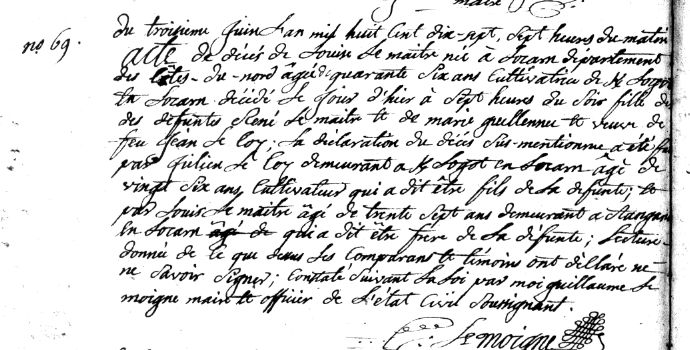 maire
no. 69.
du troisieme juin L'an mil huit Cent dix-sept, Sept heures du matin
acte de décés de Louise Le maitre née à Locarn département
des Côtes-du-nord âgé de quarante Six ans Cultivatrice de K/
En Locarn décédé Le jour d'hier à Sept heures du Soir fille de
des défunts René Le maitre et de marie guillennec et veuve de
feu jean Le Coz; La déclaration du décés Sus-mentionné a été
par julien Le Coz demeurant a K/ En Locarn âgé de
vingt Six ans Cultivateur qui a dit être fils de La défunte, et
par Louis Le maitre âgé de trente Sept ans demeurant a
En Locarn âgé de qui a dit être frere de La défunte; Lecture
donnée de Ce que dessus Les Comparans et temoins ont déllaré ne
ne Savoir Signer; Constaté Suivant La Loi par moi guillaume Le
moigne maire officier de L'état Civil Soussignant.
Le moigne